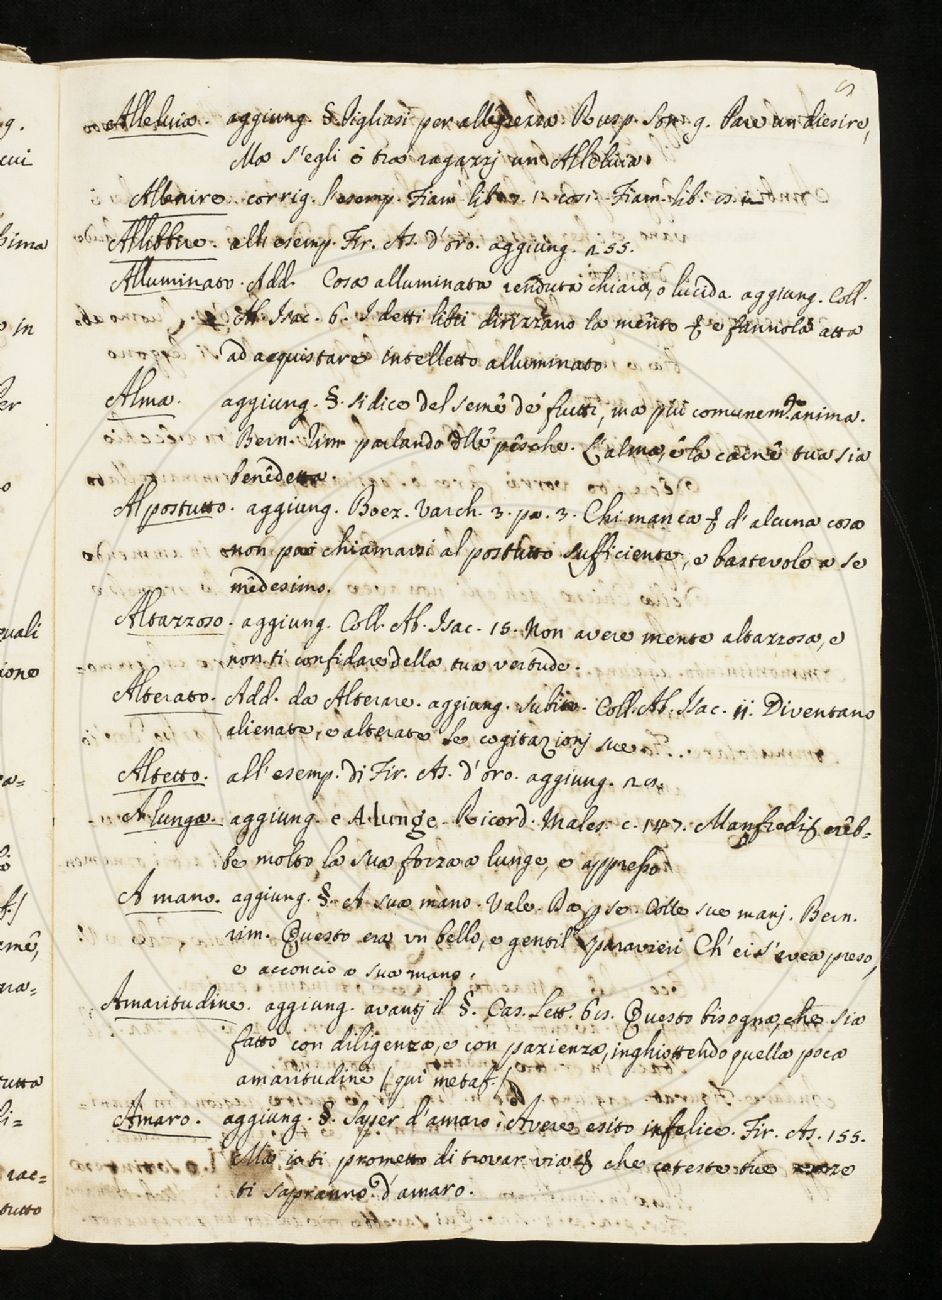 Alleluia. aggiung. §. Pigliasi per allegrezza. Rusp. Son. 9. Pare un diesire,
Ma s'egli è tra ragazzj un Alleluia.
Allenire corrig. l'esemp. Fiam. lib. così Fiam. lib.
Allibbire. all' esemp. Fir. As. d'oro. aggiung. 255.
Alluminato. Add. Cosa alluminata renduta chiara, o lucida aggiung. Coll.
Ab. Isac. 6. I detti libri dirizzano la mente e fannola atta
ad acquistare intelletto alluminato
Alma. aggiung. §. si dice del seme de' frutti, ma più comunem.te anima.
Bern. rim parlando delle pesche. L'alma, e la carne tua sia
benedetta.
Al postutto. aggiung. Boez. Varch. 3. pr. 3. Chi manca d'alcuna cosa
non può chiamarsi al postutto sufficiente, e bastevole a se
medesimo.
Altazzoso. aggiung. Coll. Ab. Isac. 15. Non avere mente altazzosa, e
non ti confidare della tua vertude.
Alterato. Add. da Alterare. aggiung. subito. Coll. Ab. Isac. 11. Diventano
alienate, e alterate le cogitazionj sue
Altetto. all' esemp. di Fir. As. d'oro. aggiung.
A lunga. aggiung. e A lunge Ricord. Males. c. 147. Manfredi crêb-
be molto la sua forza a lunge, e appresso
A mano. aggiung. §. A sua mano. Vale. Da per se. Colle sue manj. Bern.
rim. Questo era un bello, e gentil sparavieri Ch' ei s'avea preso,
e acconcio a sua mano.
Amaritudine. aggiung. avantj il §. Cas. Lett. 61. Questo bisogna, che sia
fatto con diligenza, e con pazienza, inghiottendo quella poca
amaritudine / qui metaf. /
Amaro. aggiung. §. Saper d'amaro: Avere esito infelice. Fir. As. 155.
Ma io ti prometto di trovar via che coteste tue nozze
ti sapranno d'amaro.